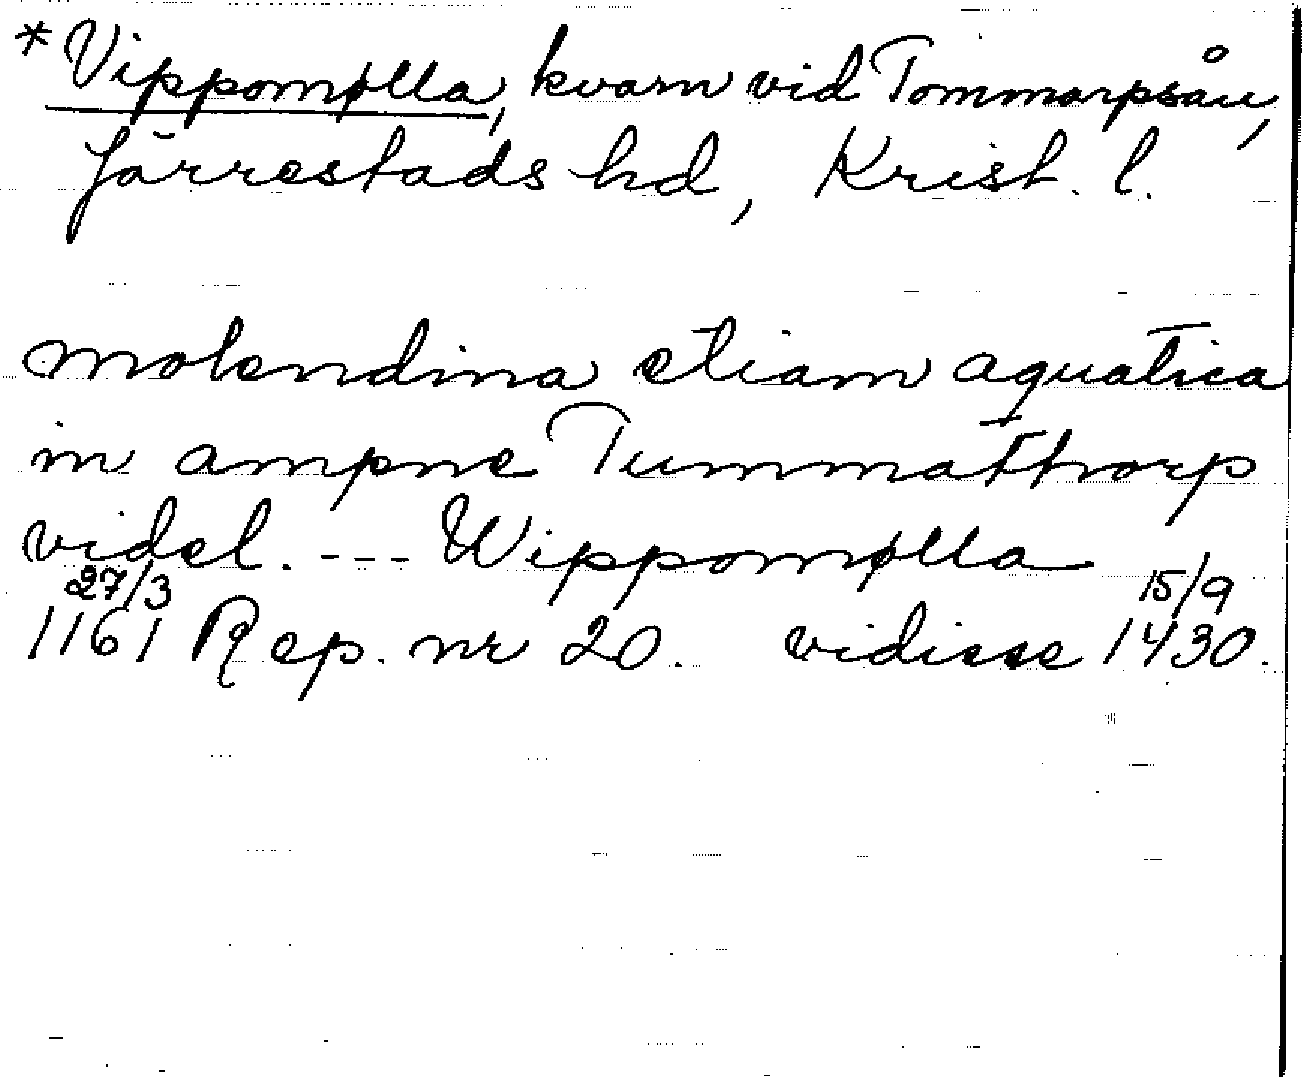 *Vippomølla, kvarn vid Tommarpsån,
Järrestads hd, Krist. l.
molendina etiam aquatica
in ampne Tummatthorp
videl. --- Wippomølla
27/3 15/9
1161 Rep. nr 20. vidisse 1430.